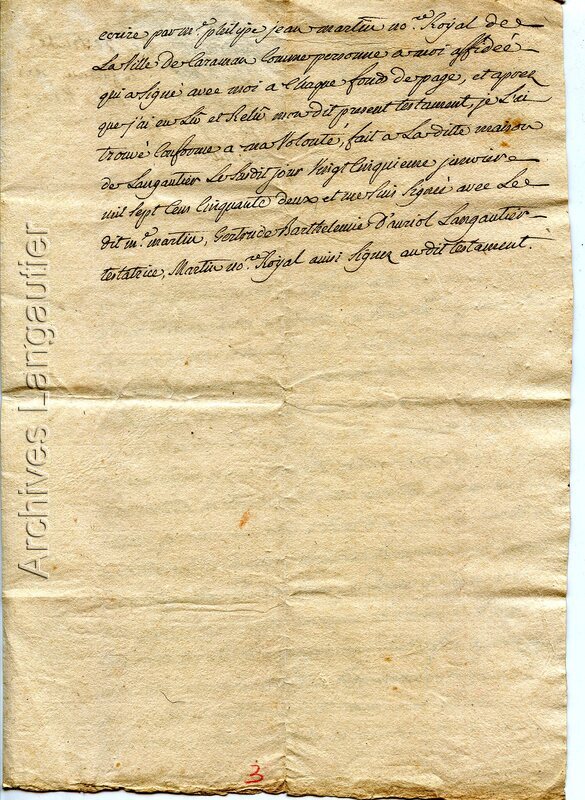 ecrire par m.e philipe jean martin no.re Royal de
La Ville de Caraman Comme personne a moi affideé
qui a signé avec moi a Chaque fonds de page, et apres
que j'ai eu Lû et Relû mon dit present testament, je L'ai
trouvé Conforme a ma Volonté, fait a La ditte maison
de Langautier Le susdit jour Vingt Cinquieme janvier
mil sept Cens Cinquante deux et me suis signée avec Le
dit m.e martin, Gertrude Barthelemie D'auriol Langautier
testatrice, Martin no.re Royal ainsi signez au dit testament.
Archives Langautier
3